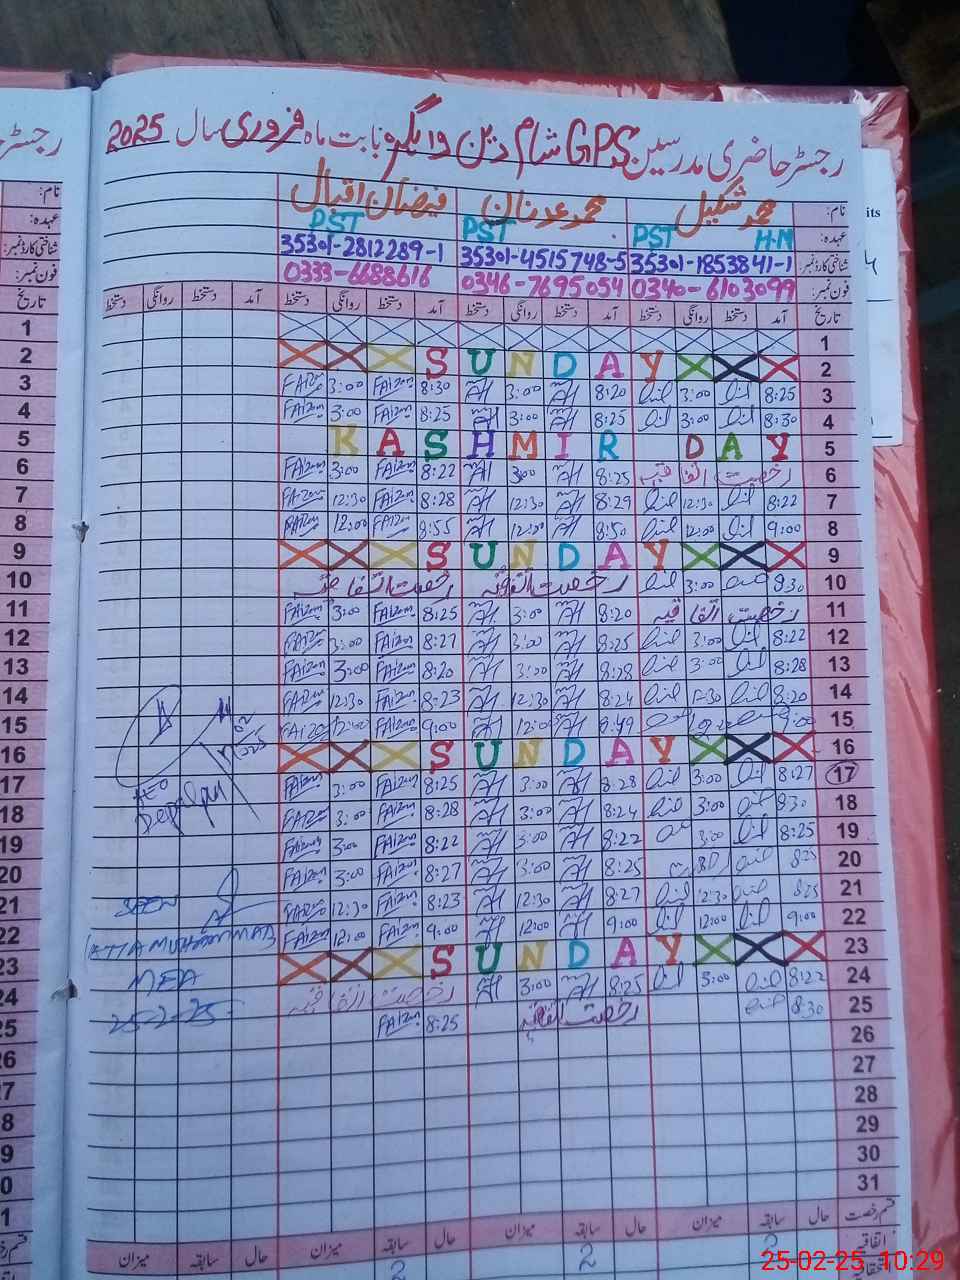 رجسٹر حاضری مدرسین GPS شام دین والگرو بابت ماہ فروری سال 2025
نام: محمد شکیل محمد عدنان فیضان اقبال
عہدہ: PST H.M PST PST
شناختی کارڈ نمبر: 35301-1853841-1 35301-4515748-5 35301-2812289-1
فون نمبر: 0340-6103099 0346-7695054 0333-6688616
تاریخ آمد دستخط روانگی دستخط آمد دستخط روانگی دستخط آمد دستخط روانگی دستخط آمد دستخط روانگی دستخط
1
2 SUNDAY
3 8:25 3:00 8:20 3:00 8:30 FAIZAN 3:00 FAIZAN
4 8:30 3:00 8:25 3:00 8:25 FAIZAN 3:00 FAIZAN
5 KASHMIR DAY
6 رخصت اتفاقیہ 8:25 3:00 8:22 FAIZAN 3:00 FAIZAN
7 8:22 12:30 8:29 12:30 8:28 FAIZAN 12:30 FAIZAN
8 9:00 12:00 8:50 12:00 8:55 FAIZAN 12:00 FAIZAN
9 SUNDAY
10 8:30 3:00 رخصت اتفاقیہ رخصت اتفاقیہ
11 رخصت اتفاقیہ 8:20 3:00 8:25 FAIZAN 3:00 FAIZAN
12 8:22 3:00 8:25 3:00 8:27 FAIZAN 3:00 FAIZAN
13 8:28 3:00 8:28 3:00 8:20 FAIZAN 3:00 FAIZAN
14 8:20 12:30 8:24 12:30 8:23 FAIZAN 12:30 FAIZAN
15 9:00 8:49 12:00 9:00 FAIZAN 12:00 FAIZAN
16 SUNDAY
17 8:27 3:00 8:28 3:00 8:25 FAIZAN 3:00 FAIZAN
18 8:30 3:00 8:24 3:00 8:28 FAIZAN 3:00 FAIZAN
19 8:25 3:00 8:22 3:00 8:22 FAIZAN 3:00 FAIZAN
20 8:25 8:25 3:00 8:27 FAIZAN 3:00 FAIZAN
21 8:25 12:30 8:27 12:30 8:23 FAIZAN 12:30 FAIZAN
22 9:00 12:00 9:00 12:00 9:00 FAIZAN 12:00 FAIZAN
23 SUNDAY
24 8:22 3:00 8:25 3:00 رخصت اتفاقیہ
25 8:30 رخصت اتفاقیہ 8:25 FAIZAN
26
27
28
29
30
31
قسم رخصت حال سابقہ میزان حال سابقہ میزان حال سابقہ میزان حال سابقہ میزان
اتفاقیہ 2 2 2
AEO
Depalpur
SEEN
ATTA MUHAMMAD
MEA
25-2-25
25-02-25 10:29